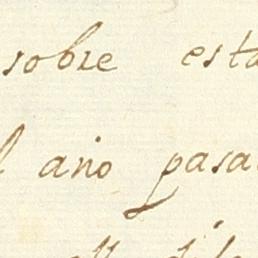 sobre esta
l año pasa